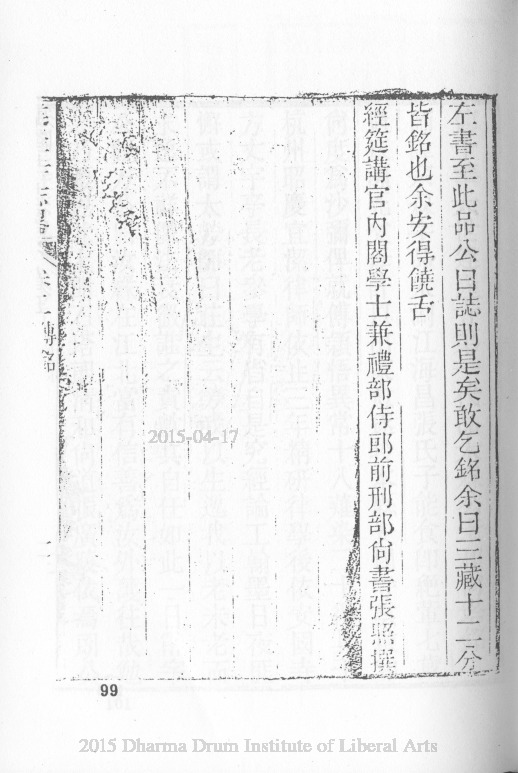 左書至此品公曰誌則是矣敢乞銘余曰三藏十二分
皆銘也余安得饒舌
經筵講官內閣學士兼禮部侍郎前刑部尙書張照撰
傳銘
2015-04-17
99
2015 Dharma Drum Institute of Liberal Arts